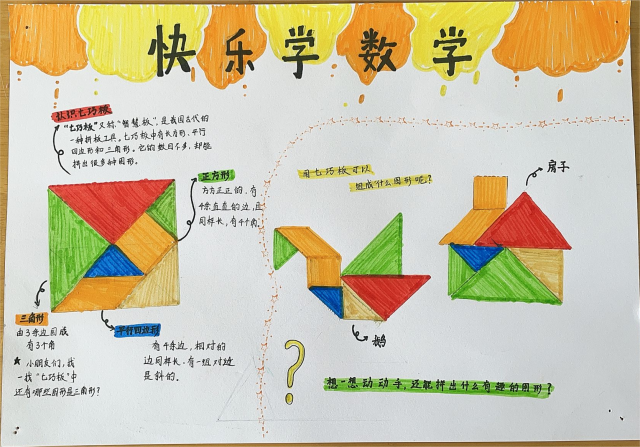 快乐学数学
认识七巧板
"七巧板"又称"智慧板",是我国古代的
一种拼板工具。七巧板中有长方形、平行
四边形和三角形。它的数目不多,却能
拼出很多种图形。
正方形
方方正正的,有
4条直直的边,且
同样长,有4个角。
三角形
由3条边围成
有3个角
★ 小朋友们,找
一找"七巧板"中
还有哪些图形是三角形?
平行四边形
有4条边,相对的
边同样长,有一组对边
是斜的。
用七巧板可以
组成什么图形呢?
房子
鹅
?
想一想,动动手,还能拼出什么有趣的图形?